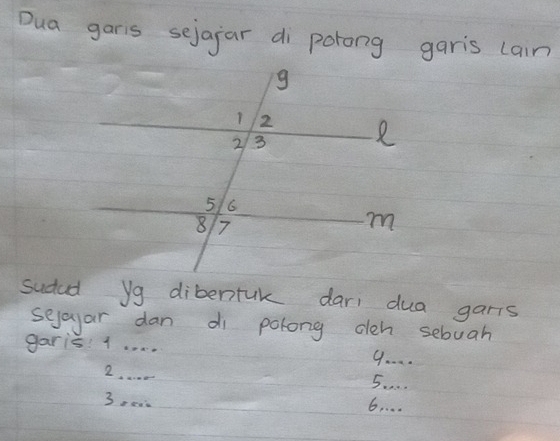 Dua garis sejajar di potong garis lain
g
1 2
l
2 3
5 6
m
8 7
sudut yg dibentuk dari dua garis
sejajar dan di potong oleh sebuah
garis: 1 .....
4....
2.....
5....
3.....
6....